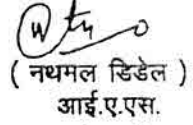 ( नथमल डिडेल )
आई.ए.एस.